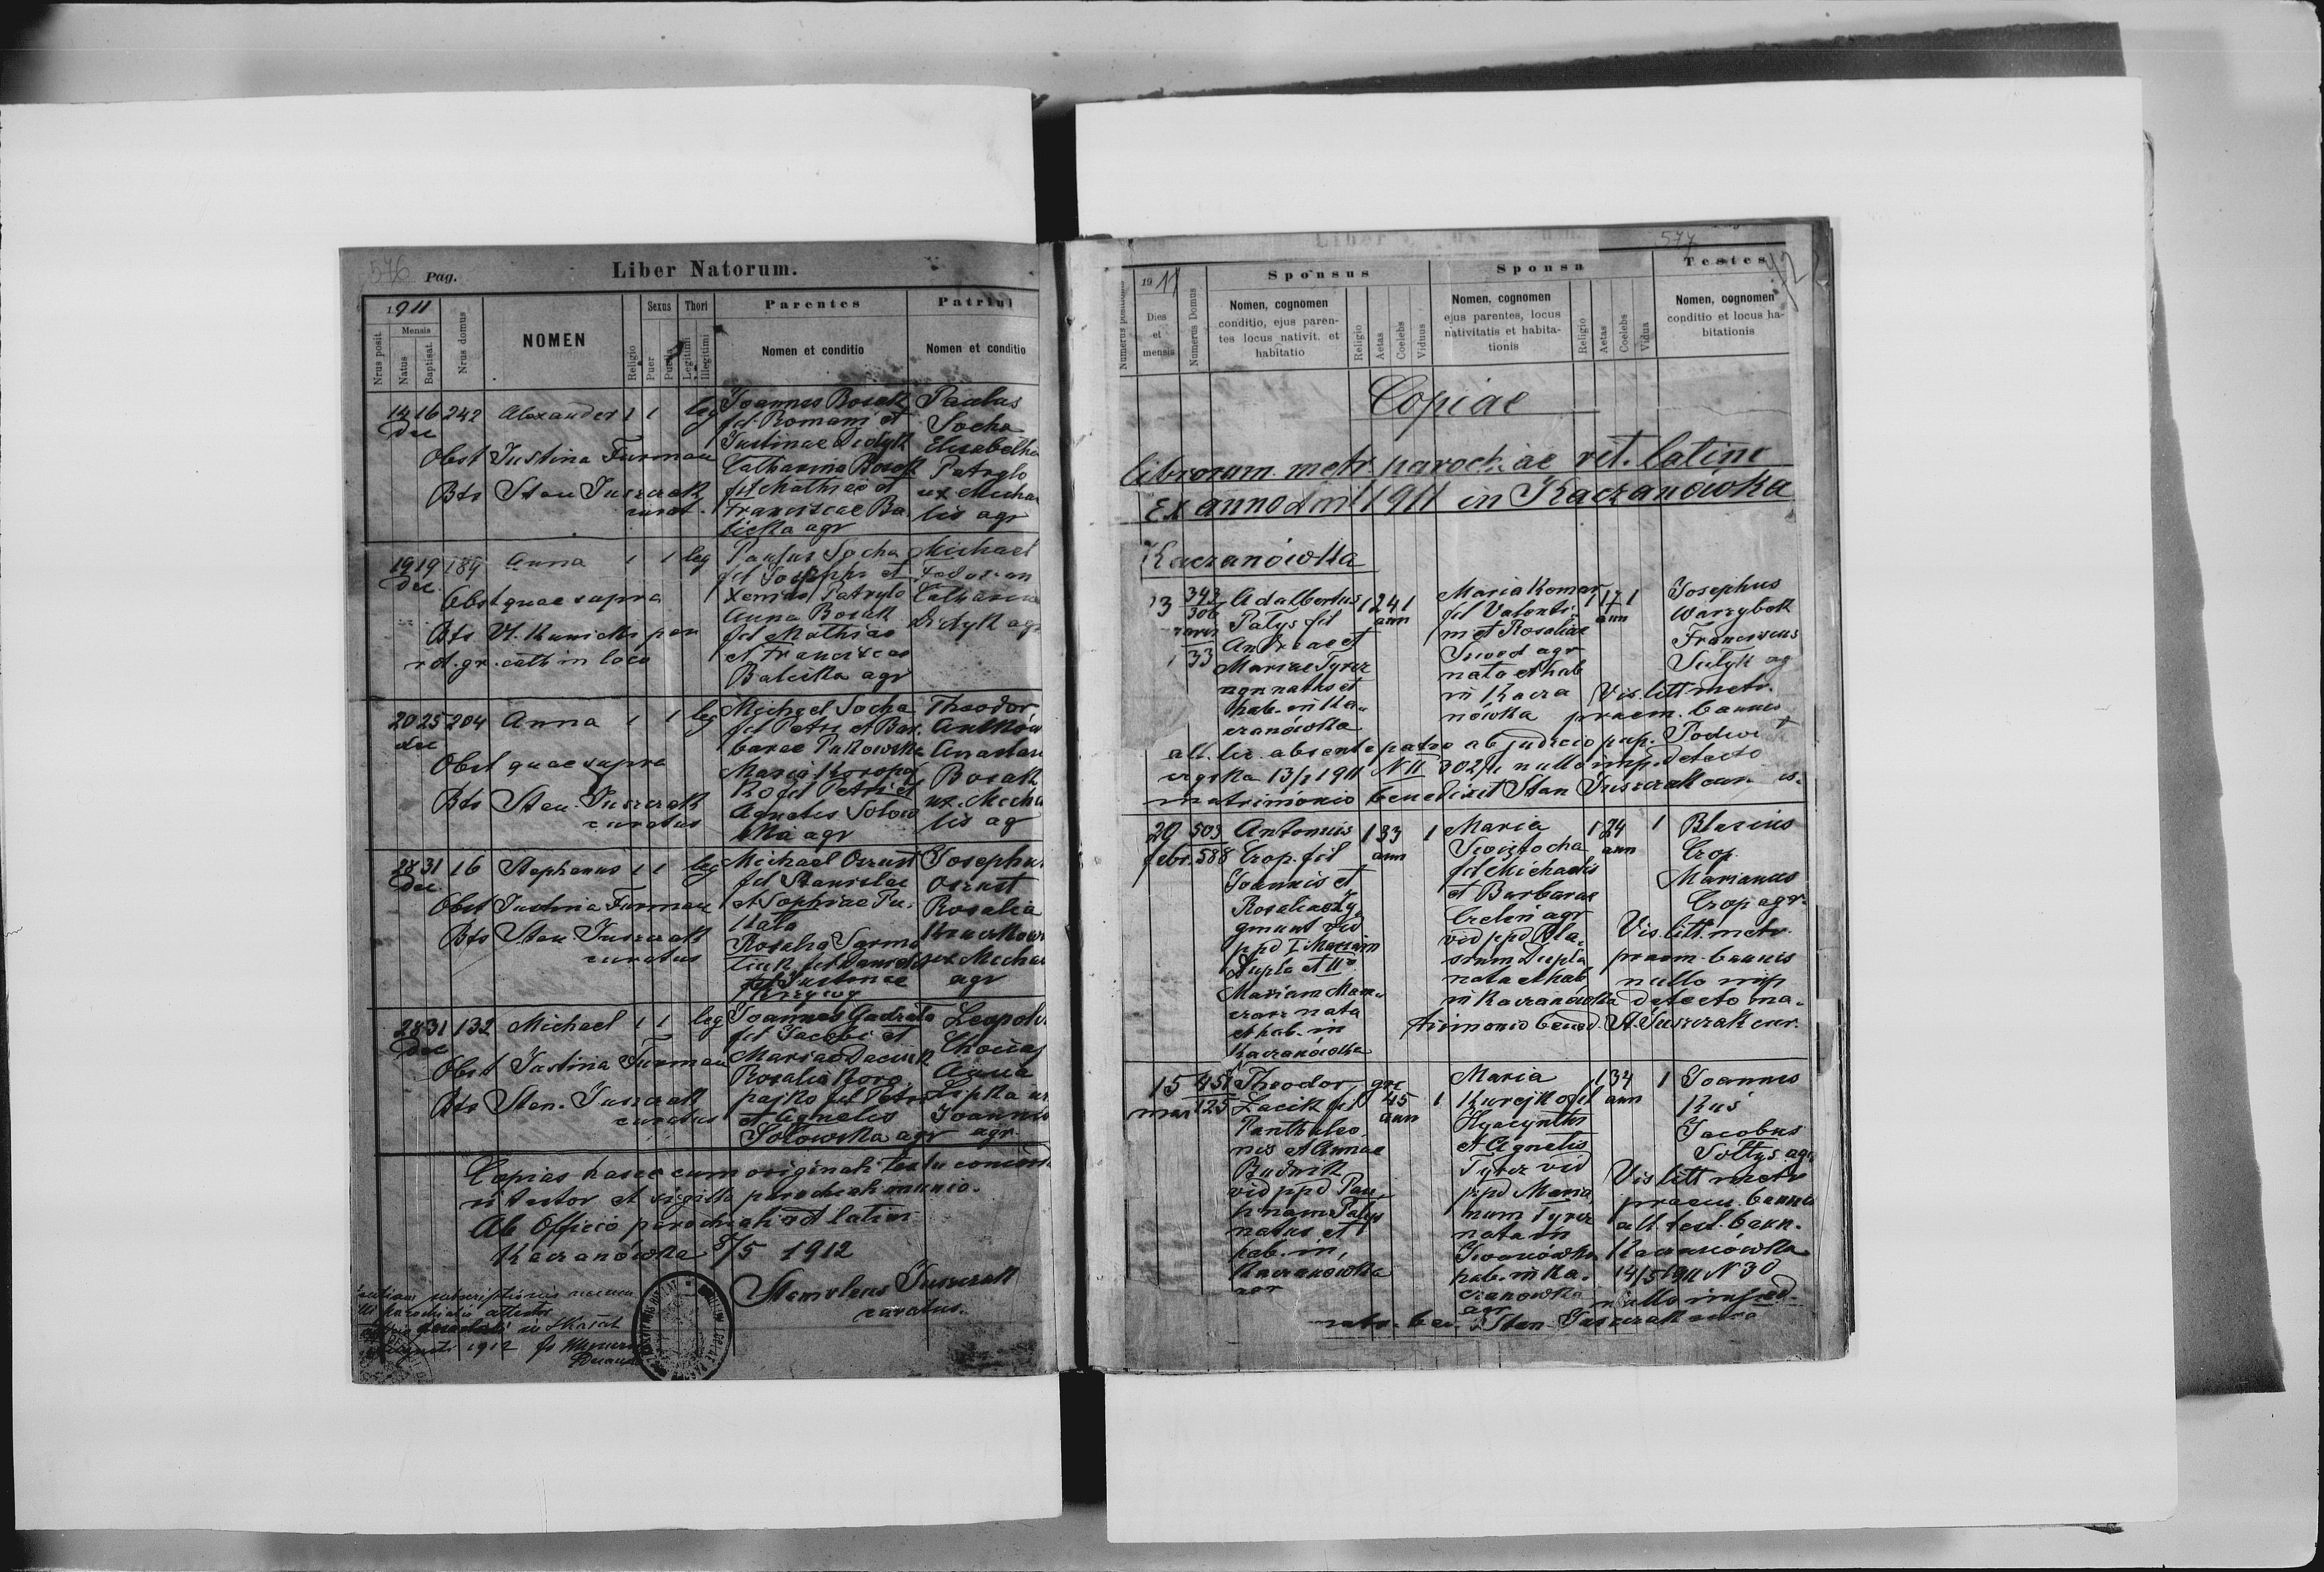 576 Pag.
Liber Natorum.
1911
Nrus posit.
Mensis
Natus
Baptisat.
Nrus domus
NOMEN
Religio
Sexus
Puer
Puella
Thori
Legitimi
Illegitimi
Parentes
Nomen et conditio
Patrini
Nomen et conditio
14 16 242 Alexander 1 1 leg
dec
Obst Justina Furman
Bts Stan Juszczak
curat.
Joannes Bosak
fil Romani et
Justinae Didyk
Catharina Bosak
fil Mathiae et
Franciscae Ba
licka agr
Paulus
Socha
Elisabetha
Patrylo
ux Micha
lis agr
19 19 189 Anna 1 1 leg
dec
Obst quae supra
Bts Vl. Kunicki par
rit. gr. cath in loco
Paulus Socha
fil Josephi et
Xeniae Patrylo
Anna Bosak
fil Mathiae
et Franciscae
Balicka agr
Michael
Catharina
Didyk agr
20 25 204 Anna 1 1 leg
dec
Obst quae supra
Bts Stan. Juszczak
curatus
Michael Socha
fil Petri et Bar
barae Pukowska
Maria Koropaj
ko fil Petri et
Agnetis Solow
ska agr
Theodor
Antków
Anastasi
Bosak
ux. Micha
lis ag
28 31 16 Stephanus 1 1 leg
dec
Obst Justina Furman
Bts Stan Juszczak
curatus
Michael Oszust
fil Stanislai
et Sophiae Pu
kala
Rosalia Sarma
tiuk fil Danielis
et Justinae
Josephus
Oszust
Rosalia
ux Micha
agr
28 31 132 Michael 1 1 leg
dec
Obst Justina Furman
Bts Stan. Juszczak
curatus
Joannes Gadzala
fil Jacobi et
Mariae Daciuk
Rosalia Koro
pajko fil Petri
et Agnetis
Solowska agr
Leopold
Anna
Lipka ux
Joannis
agr.
Copias hasce cum originali textu concord
ri testor et sigillo parochiali munio.
Ab Officio parochiali rit latini
Kaczanówka 8/5 1912
Stanislaus Juszczak
curatus.
1912
577
Numerus positionis
1911
Dies
et
mensis
Numerus Domus
Sponsus
Nomen, cognomen
conditio, ejus paren-
tes locus nativit. et
habitatio
Religio
Aetas
Coelebs
Viduus
Sponsa
Nomen, cognomen
ejus parentes, locus
nativitatis et habita-
tionis
Religio
Aetas
Coelebs
Vidua
Testes
Nomen, cognomen
conditio et locus ha-
bitationis
Copiae
librorum metr. parochiae rit. latini
Ex anno Dni 1911 in Kaczanówka
Kaczanówka
343
306
33
Adalbertus 1 24 1
ann
Palys fil
Andreae et
Mariae Tyrcz
agr natus et
hab. in Ka
czanówka
Maria Komar 1 17 1
ann
fil Valenti
ni et Rosaliae
Szwed agr
nata et hab
in Kacza
nówka
Josephus
Warzybok
Franciscus
Sutyk ag
Vis. litt. metr.
praem. bannis
all. lic. absente patre a judicio pup. Podwo
czyska 13/2 1911 N II 302/11 nullo imp. detecto
matrimonio benedixit Stan Juszczak cur.
20
febr.
503
588
Antonius 1 33 1
ann
Czop fil
Joannis et
Rosaliae Zy
gmunt vid
ppd I Mariam
Dupla et II
Mariam Mar
czak nata
et hab. in
Kaczanówka
Maria 1 24 1
ann
Swistocha
fil Michaelis
et Barbarae
Crelen agr
vid ppd Bla
sium Dupla
nata et hab
in Kaczanówka
Blasius
Czop
Marianus
Czop agr.
Vis. litt. metr.
praem. bannis
nullo imp
detecto ma
trimonio bened. St. Juszczak cur.
15
mar
451
125
Theodor gr
45 1
ann
Lacik fil
Panthaleo
nis et Annae
Budnik
vid ppd Pau
linam Palys
natus et
hab. in
Kaczanówka
agr
Maria 1 34 1
ann
Kurejko fil
Hyacynthi
et Agnetis
Tyrcz vid
ppd Maria
num Tyrcz
nata in
Iwanówka
hab. in Ka
czanówka
agr
Joannes
Kuś
Jacobus
Sołtys agr
Vis litt metr
praem. bannis
all. test. bann.
Kaczanówka
14/5 1911 N 30
nullo imped.
matr. ben. Stan. Juszczak cura